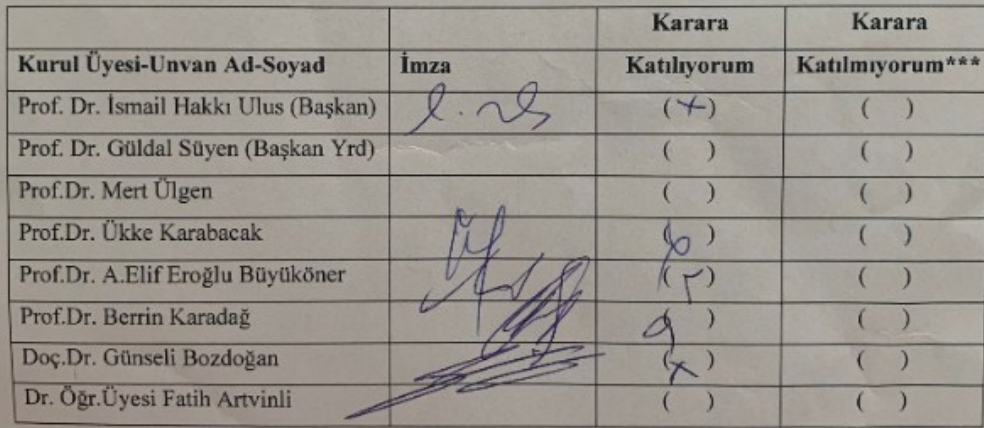 Karara Karara
Kurul Üyesi-Unvan Ad-Soyad İmza Katılıyorum Katılmıyorum***
Prof. Dr. İsmail Hakkı Ulus (Başkan) (+) ( )
Prof. Dr. Güldal Süyen (Başkan Yrd) ( ) ( )
Prof.Dr. Mert Ülgen ( ) ( )
Prof.Dr. Ükke Karabacak ( ) ( )
Prof.Dr. A.Elif Eroğlu Büyüköner ( ) ( )
Prof.Dr. Berrin Karadağ ( ) ( )
Doç.Dr. Günseli Bozdoğan (x) ( )
Dr. Öğr.Üyesi Fatih Artvinli ( ) ( )